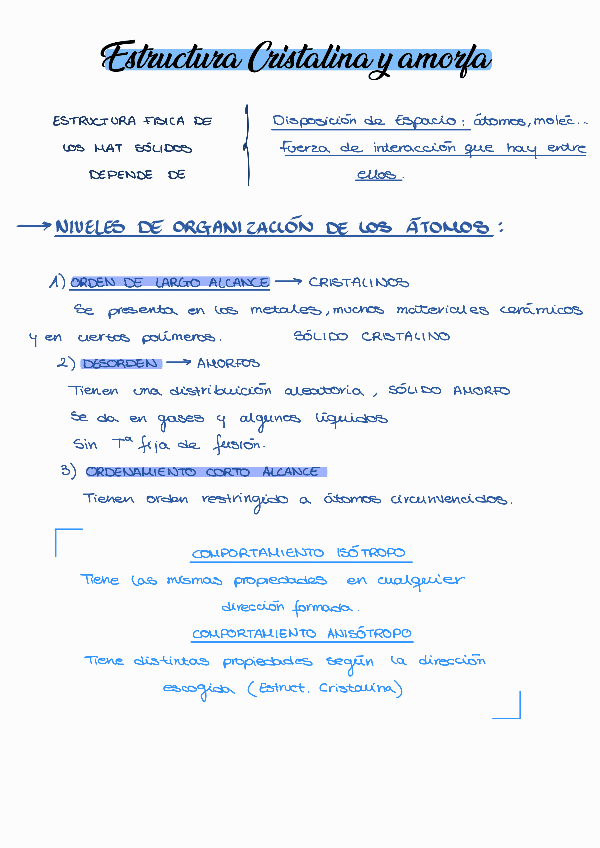 Estructura Cristalina y amorfa
ESTRUCTURA FISICA DE
LOS MAT SÓLIDOS
DEPENDE DE
Disposición de Espacio: átomos, moléc...
Fuerza de interacción que hay entre
ellos.
→ NIVELES DE ORGANIZACIÓN DE LOS ÁTOMOS:
1) ORDEN DE LARGO ALCANCE → CRISTALINOS
Se presenta en los metales, muchos materiales cerámicos
y en ciertos polímeros. SÓLIDO CRISTALINO
2) DESORDEN → AMORFOS
Tienen una distribuición aleatoria, SÓLIDO AMORFO
Se da en gases y algunos líquidos
Sin Tª fija de fusión.
3) ORDENAMIENTO CORTO ALCANCE
Tienen orden restringido a átomos circunvencidos.
COMPORTAMIENTO ISÓTROPO
Tiene las mismas propiedades en cualquier
dirección formada.
COMPORTAMIENTO ANISÓTROPO
Tiene distintas propiedades según la dirección
escogida (Estruct. Cristalina)